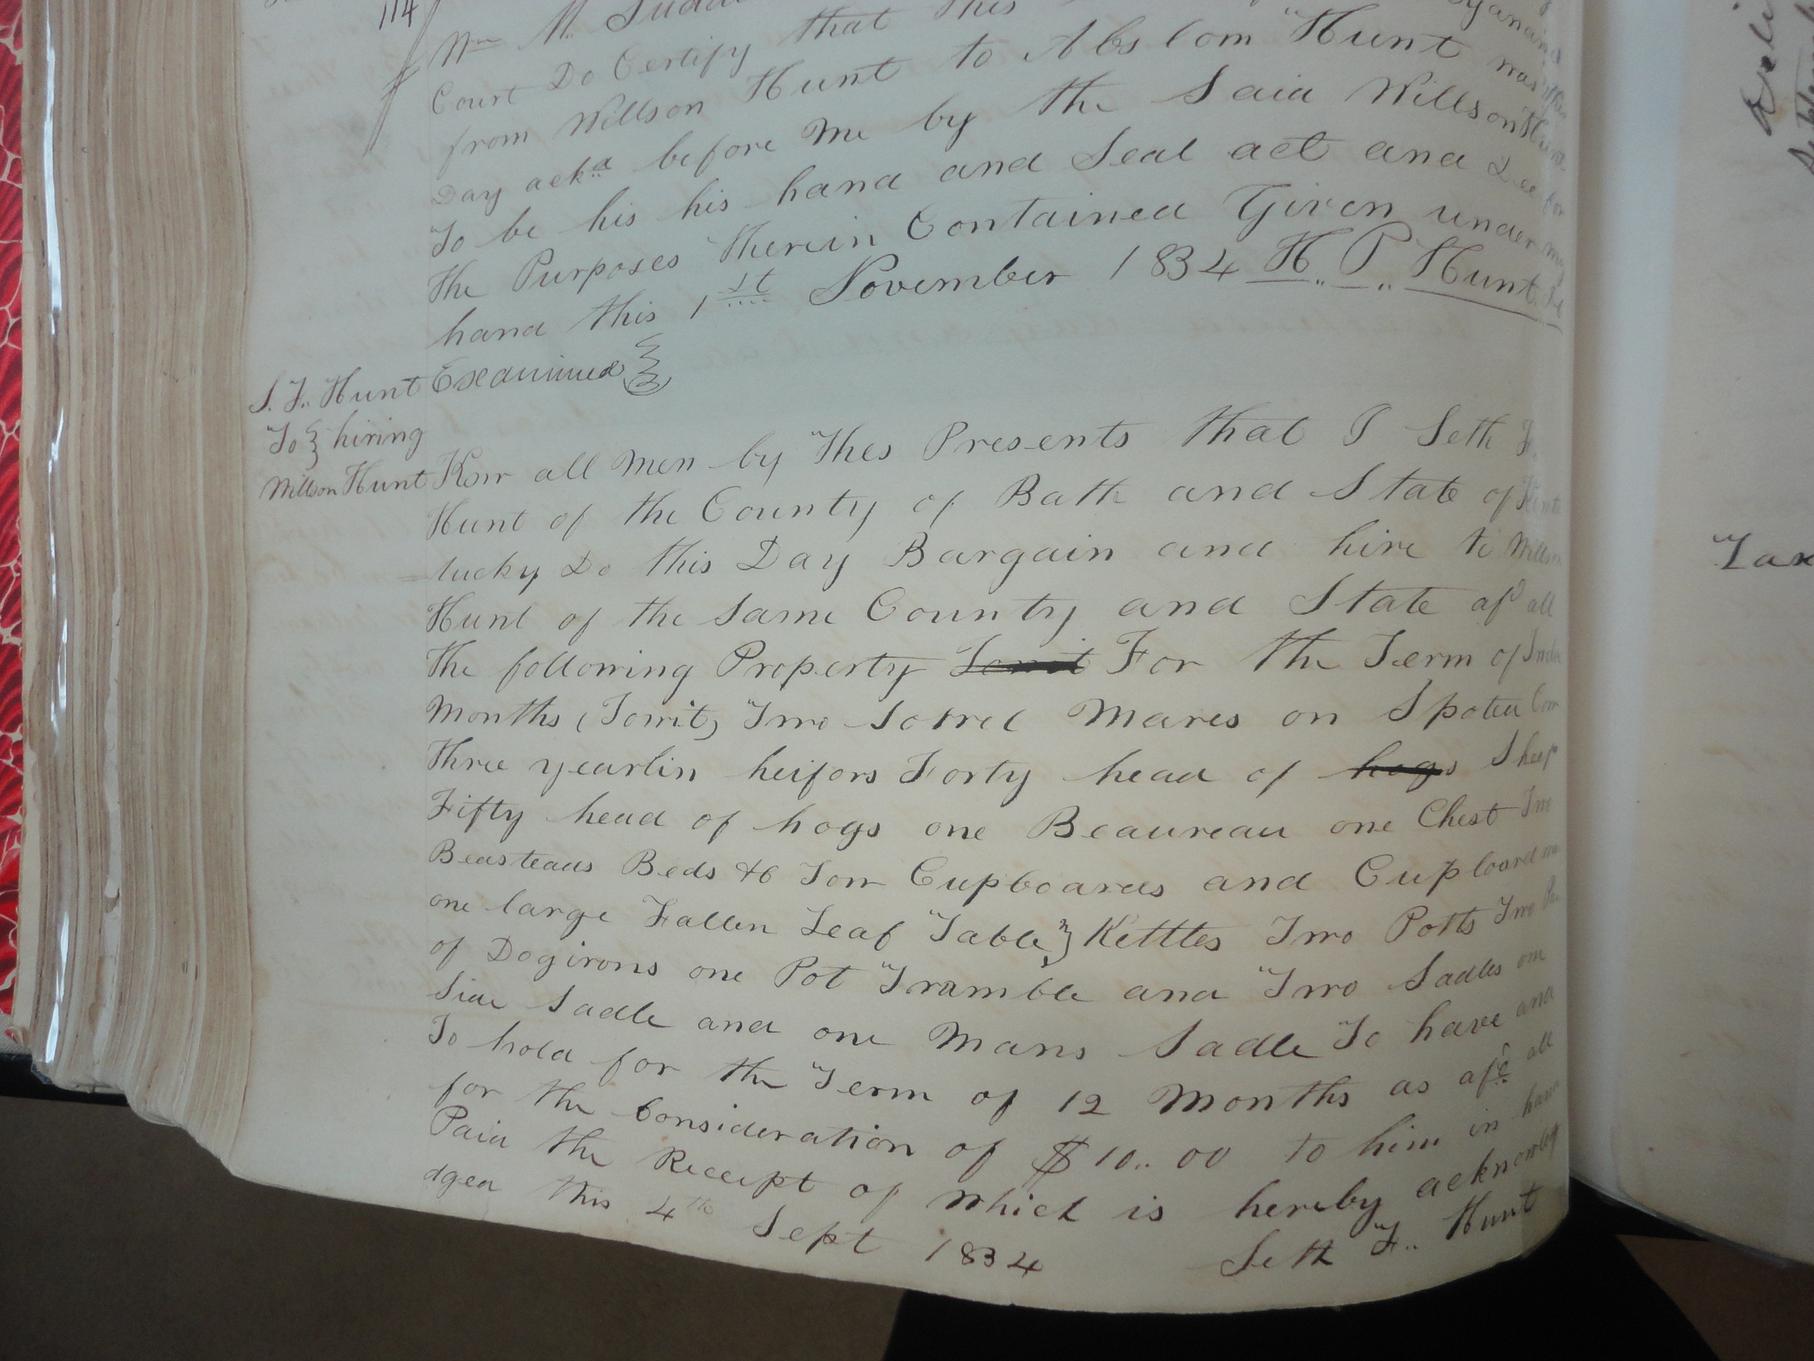 114
Wm M. Sudd
Court Do Certify that this
from Willson Hunt to Abslom Hunt was
Day ackd before Me by the Said Willson Hunt
To be his his hand and Seal act and Dee for
the Purposes therein Contained Given under my
hand this 1st November 1834 H. P Hunt
Examined
S. F. Hunt
To } hiring
Willson Hunt
Know all Men by Thes Presents that I Seth F.
Hunt of the County of Bath and State of Kent
=tucky Do this Day Bargain and hire to Willson
Hunt of the Same County and State afd all
the following Property Towit For the Term of
Months (Towit) Two Sorrel Mares on Spoted Cow
Three yearlin heifors Forty head of hogs Sheep
Fifty head of hogs one Beaureau one Chest Two
Beasteads Beds &c Tow Cupboards and Cupboard
one large Fallen Leaf Table } Kettles Two Potts Two
of Dogirons one Pot Tramble and Two Sadles one
Side Sadle and one Mans Sadle To have and
To hold for the Term of 12 Months as afd all
for the Consideration of $10.. 00 to him in hand
Paid the Receipt of which is hereby acknowle
dged this 4th Sept 1834 Seth F.. Hunt
Tax